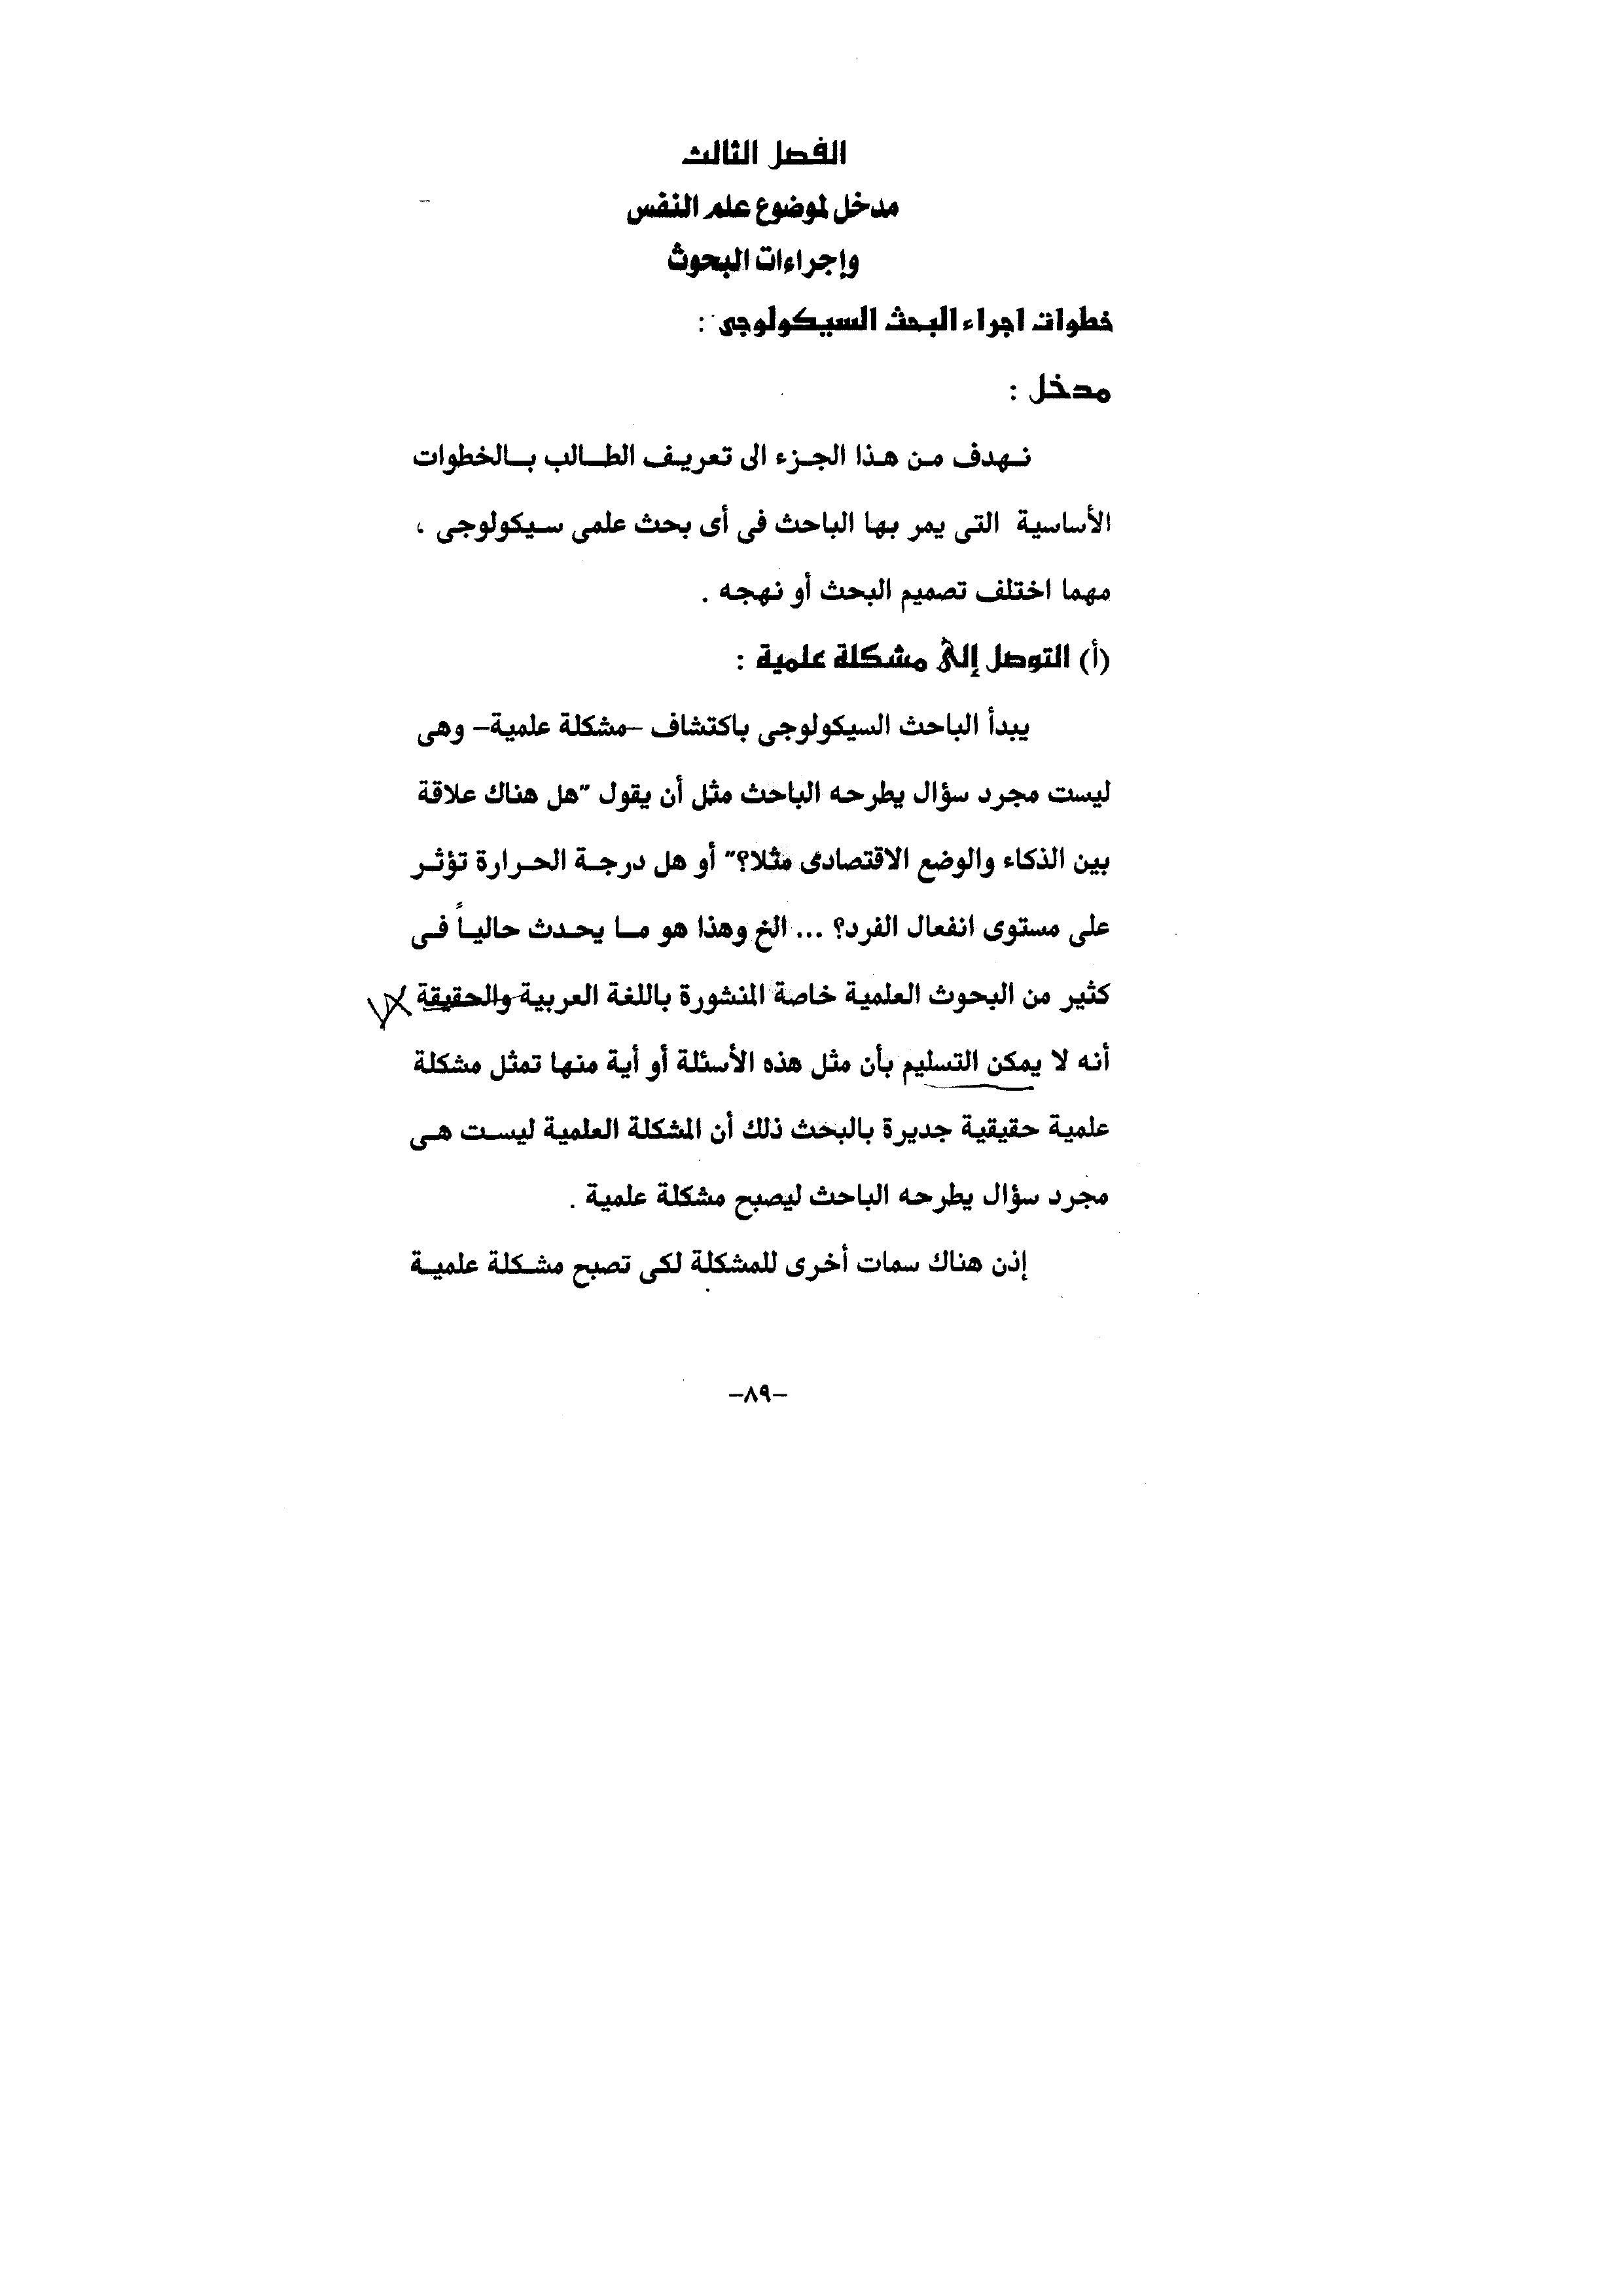 الفصل الثالث
مدخل لموضوع علم النفس
وإجراءات البحوث
خطوات اجراء البحث السيكولوجى :
مدخل :
نهدف من هذا الجزء الى تعريف الطالب بالخطوات
الأساسية التى يمر بها الباحث فى أى بحث علمى سيكولوجى ،
مهما اختلف تصميم البحث أو نهجه .
(أ) التوصل إلى مشكلة علمية :
يبدأ الباحث السيكولوجى باكتشاف –مشكلة علمية– وهى
ليست مجرد سؤال يطرحه الباحث مثل أن يقول "هل هناك علاقة
بين الذكاء والوضع الاقتصادى مثلا؟" أو هل درجة الحرارة تؤثر
على مستوى انفعال الفرد؟ ... الخ وهذا هو ما يحدث حالياً فى
كثير من البحوث العلمية خاصة المنشورة باللغة العربية والحقيقة
أنه لا يمكن التسليم بأن مثل هذه الأسئلة أو أية منها تمثل مشكلة
علمية حقيقية جديرة بالبحث ذلك أن المشكلة العلمية ليست هى
مجرد سؤال يطرحه الباحث ليصبح مشكلة علمية .
إذن هناك سمات أخرى للمشكلة لكى تصبح مشكلة علمية
–٨٩–